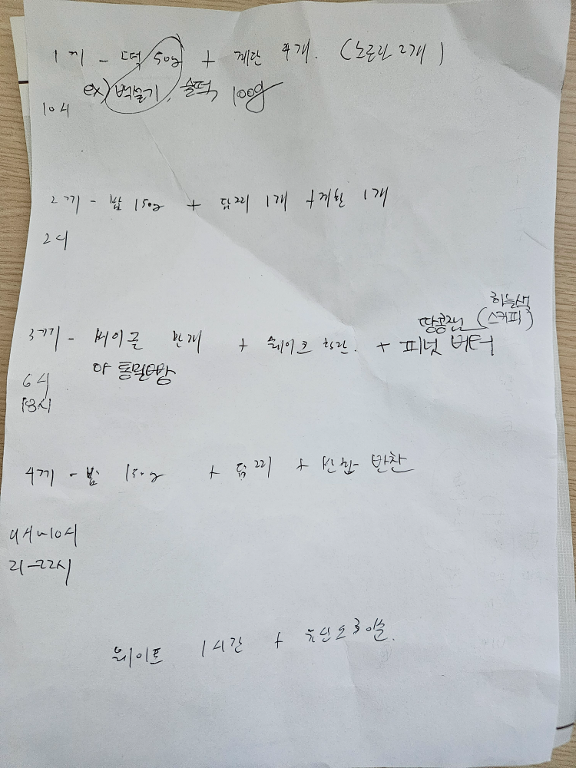 1끼 - 떡 50g + 계란 4개. (노른자 2개)
ex) 백설기, 술떡, 100g
10시
2끼 - 밥 150g + 닭찌 1개 + 계란 1개
2시
하늘색
땅콩잼 (스키피)
3끼 - 베이글 반개 + 쉐이크 한잔. + 피넛 버터
or 통밀빵
6시
18시
4끼 - 밥 150g + 닭찌 + 반찬
9시~10시
21-22시
웨이트 1시간 + 유산소 30분.